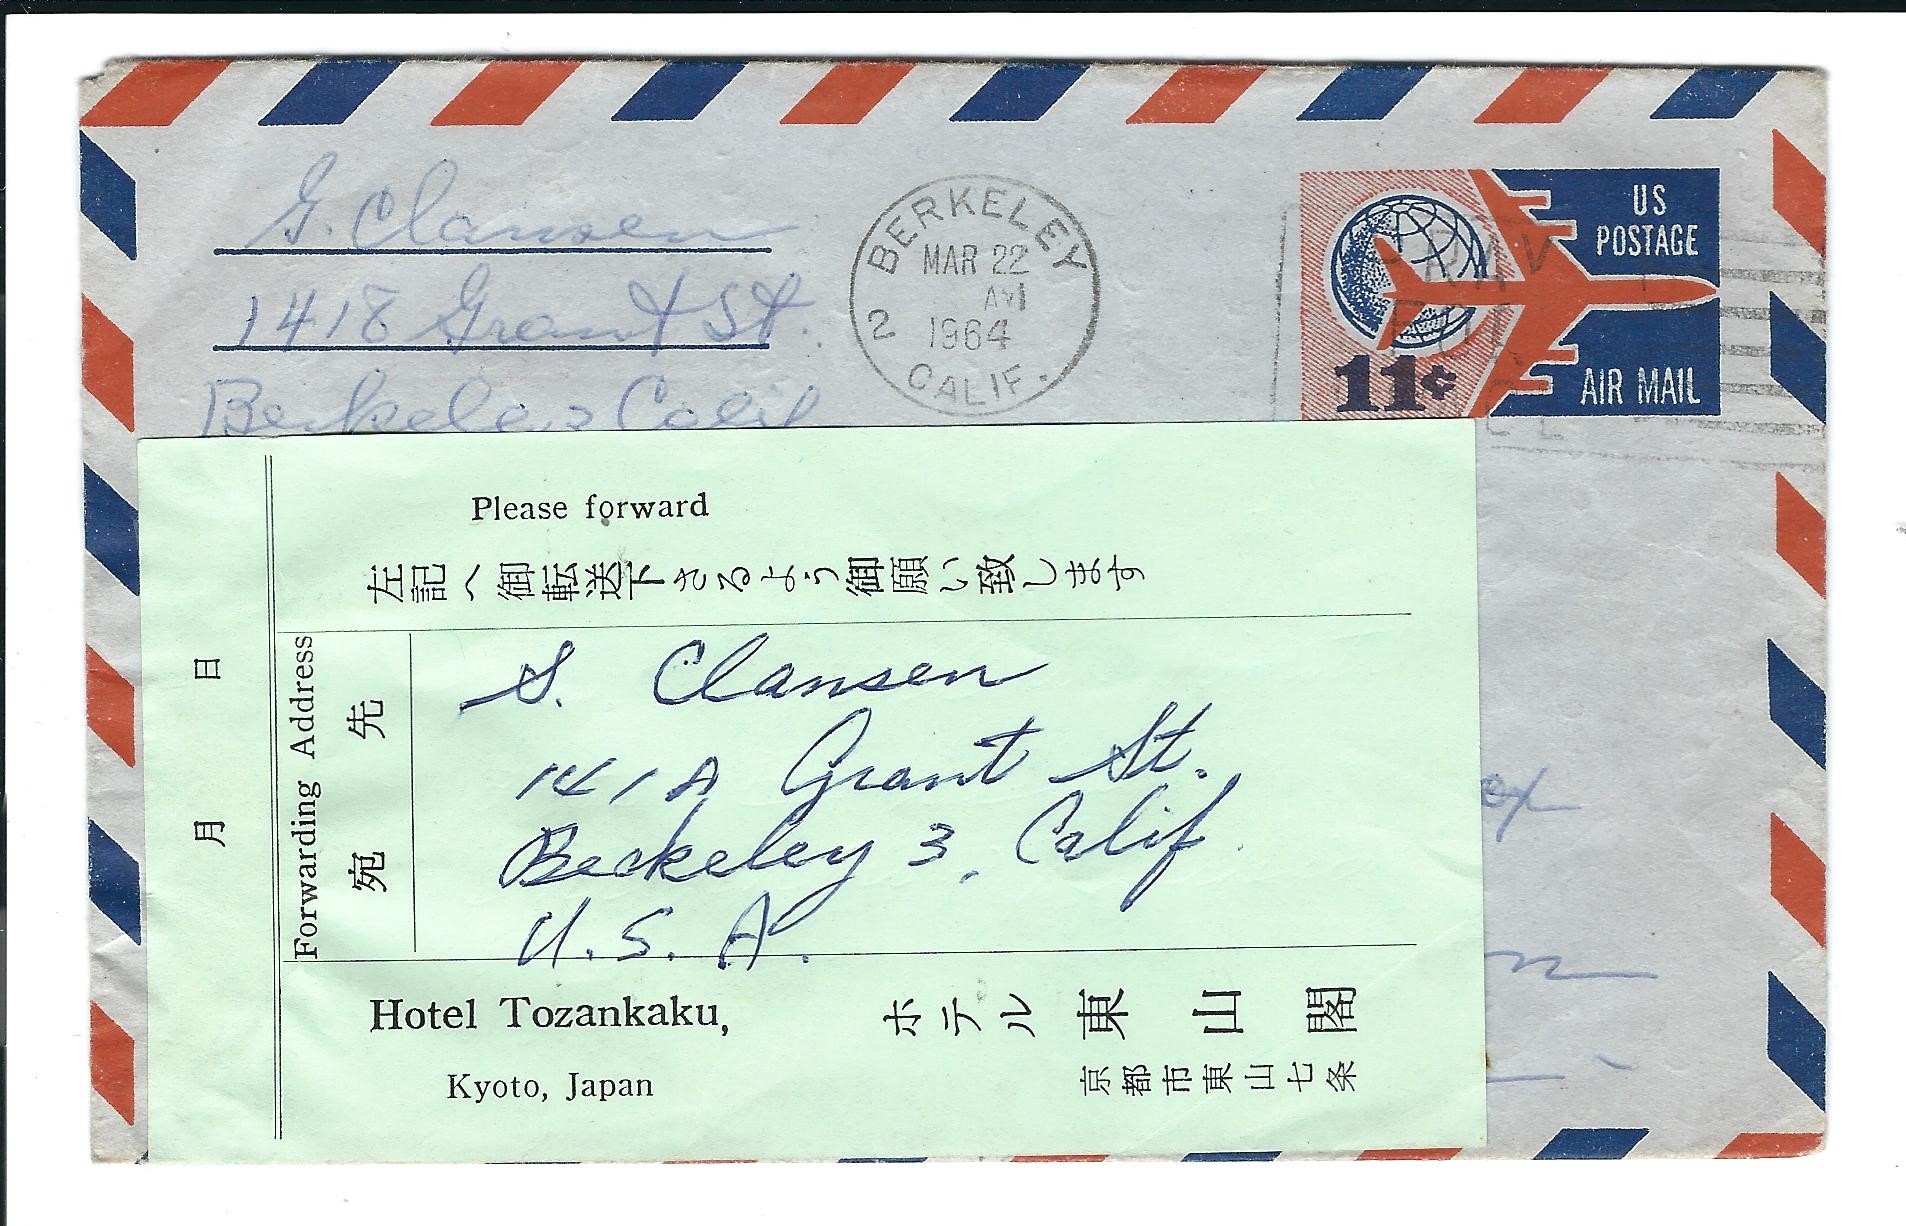 G. Clansen
1418 Grant St.
Berkeley 3 Calif
BERKELEY
MAR 22
AM
1964
2
CALIF.
US
POSTAGE
11¢
AIR MAIL
PRAY
FOR
Please forward
左記へ御転送下さるよう御願い致します
月 日
Forwarding Address
宛先
S. Clansen
141A Grant St.
Berkeley 3, Calif.
U. S. A.
Hotel Tozankaku,
ホテル 東山閣
Kyoto, Japan
京都市東山七条